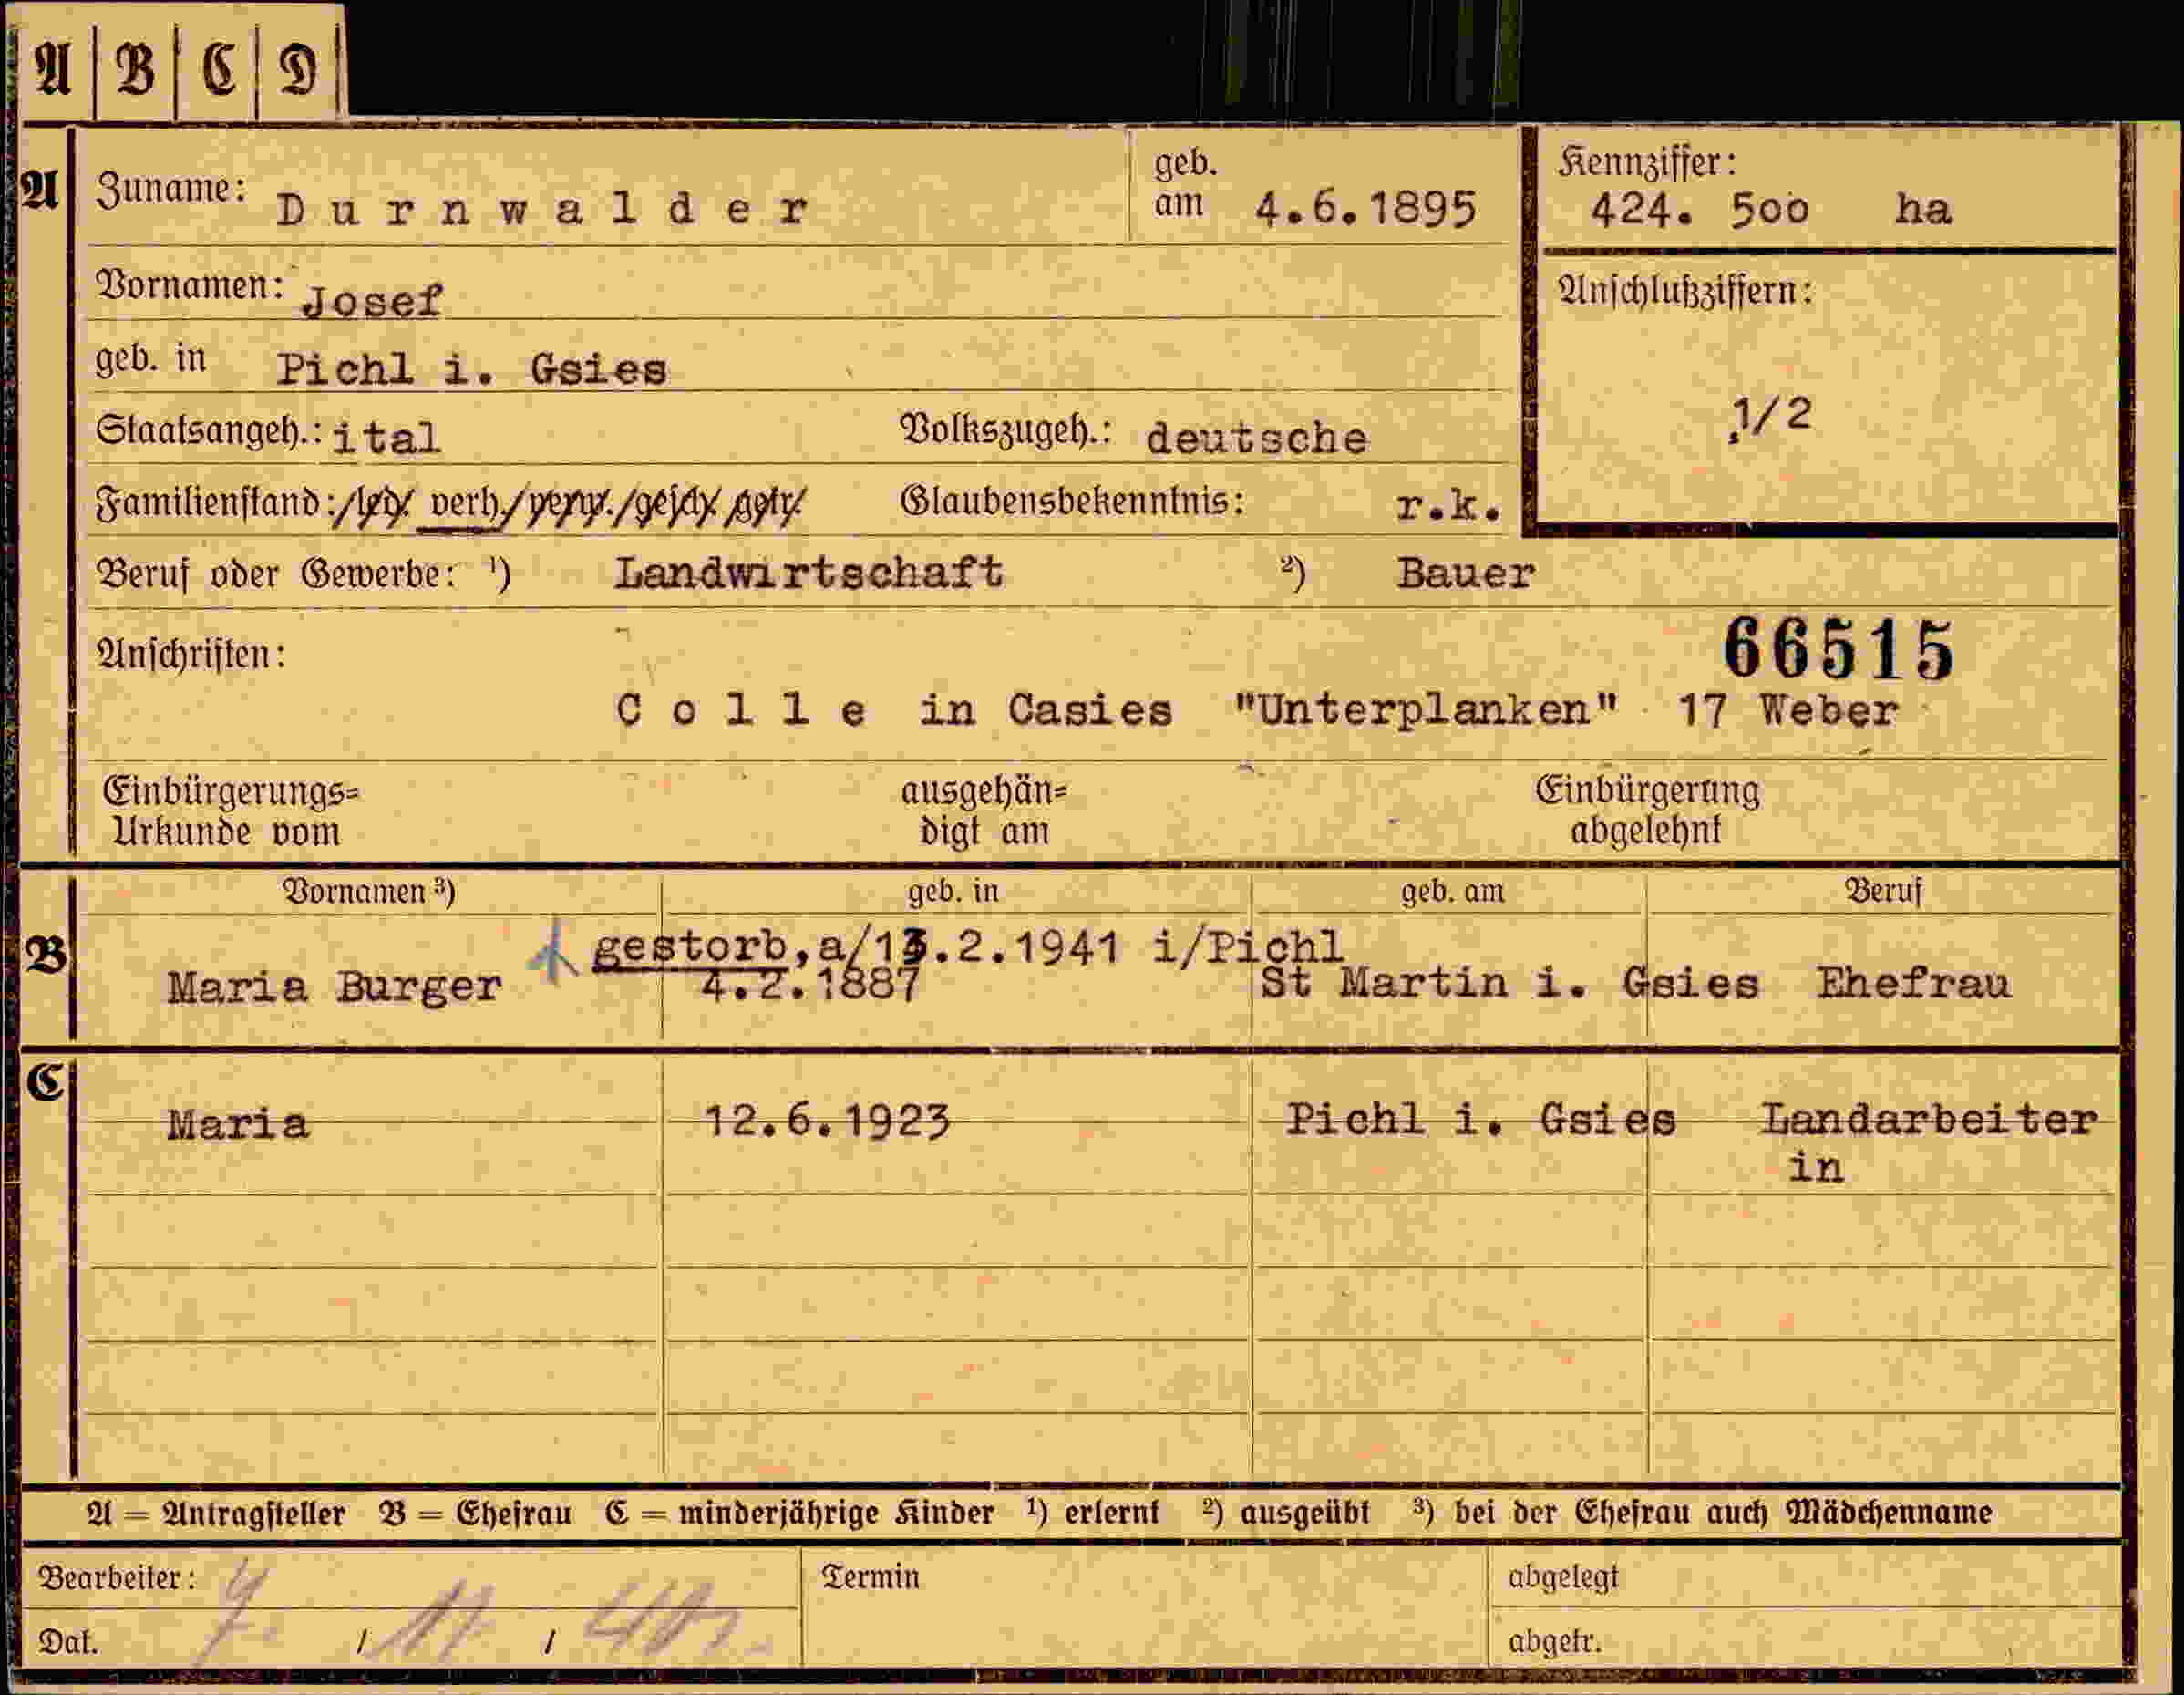 A B C D
A Zuname: Durnwalder geb. am 4.6.1895
Kennziffer: 424. 500 ha
Vornamen: Josef
Anschlußziffern:
1/2
geb. in Pichl i. Gsies
Staatsangeh.: ital Volkszugeh.: deutsche
Familienstand: /led/. verh./verw./gesch/. getr/. Glaubensbekenntnis: r.k.
Beruf oder Gewerbe: ¹) Landwirtschaft ²) Bauer
66515
Anschriften:
Colle in Casies "Unterplanken" 17 Weber
Einbürgerungs= Urkunde vom
ausgehän= digt am
Einbürgerung abgelehnt
Vornamen ³) geb. in geb. am Beruf
gestorb,a/13.2.1941 i/Pichl
B Maria Burger 4.2.1887 St Martin i. Gsies Ehefrau
C
Maria 12.6.1923 Pichl i. Gsies Landarbeiter
in
A = Antragsteller B = Ehefrau C = minderjährige Kinder ¹) erlernt ²) ausgeübt ³) bei der Ehefrau auch Mädchenname
Bearbeiter: Termin abgelegt
Dat. / / abgetr.